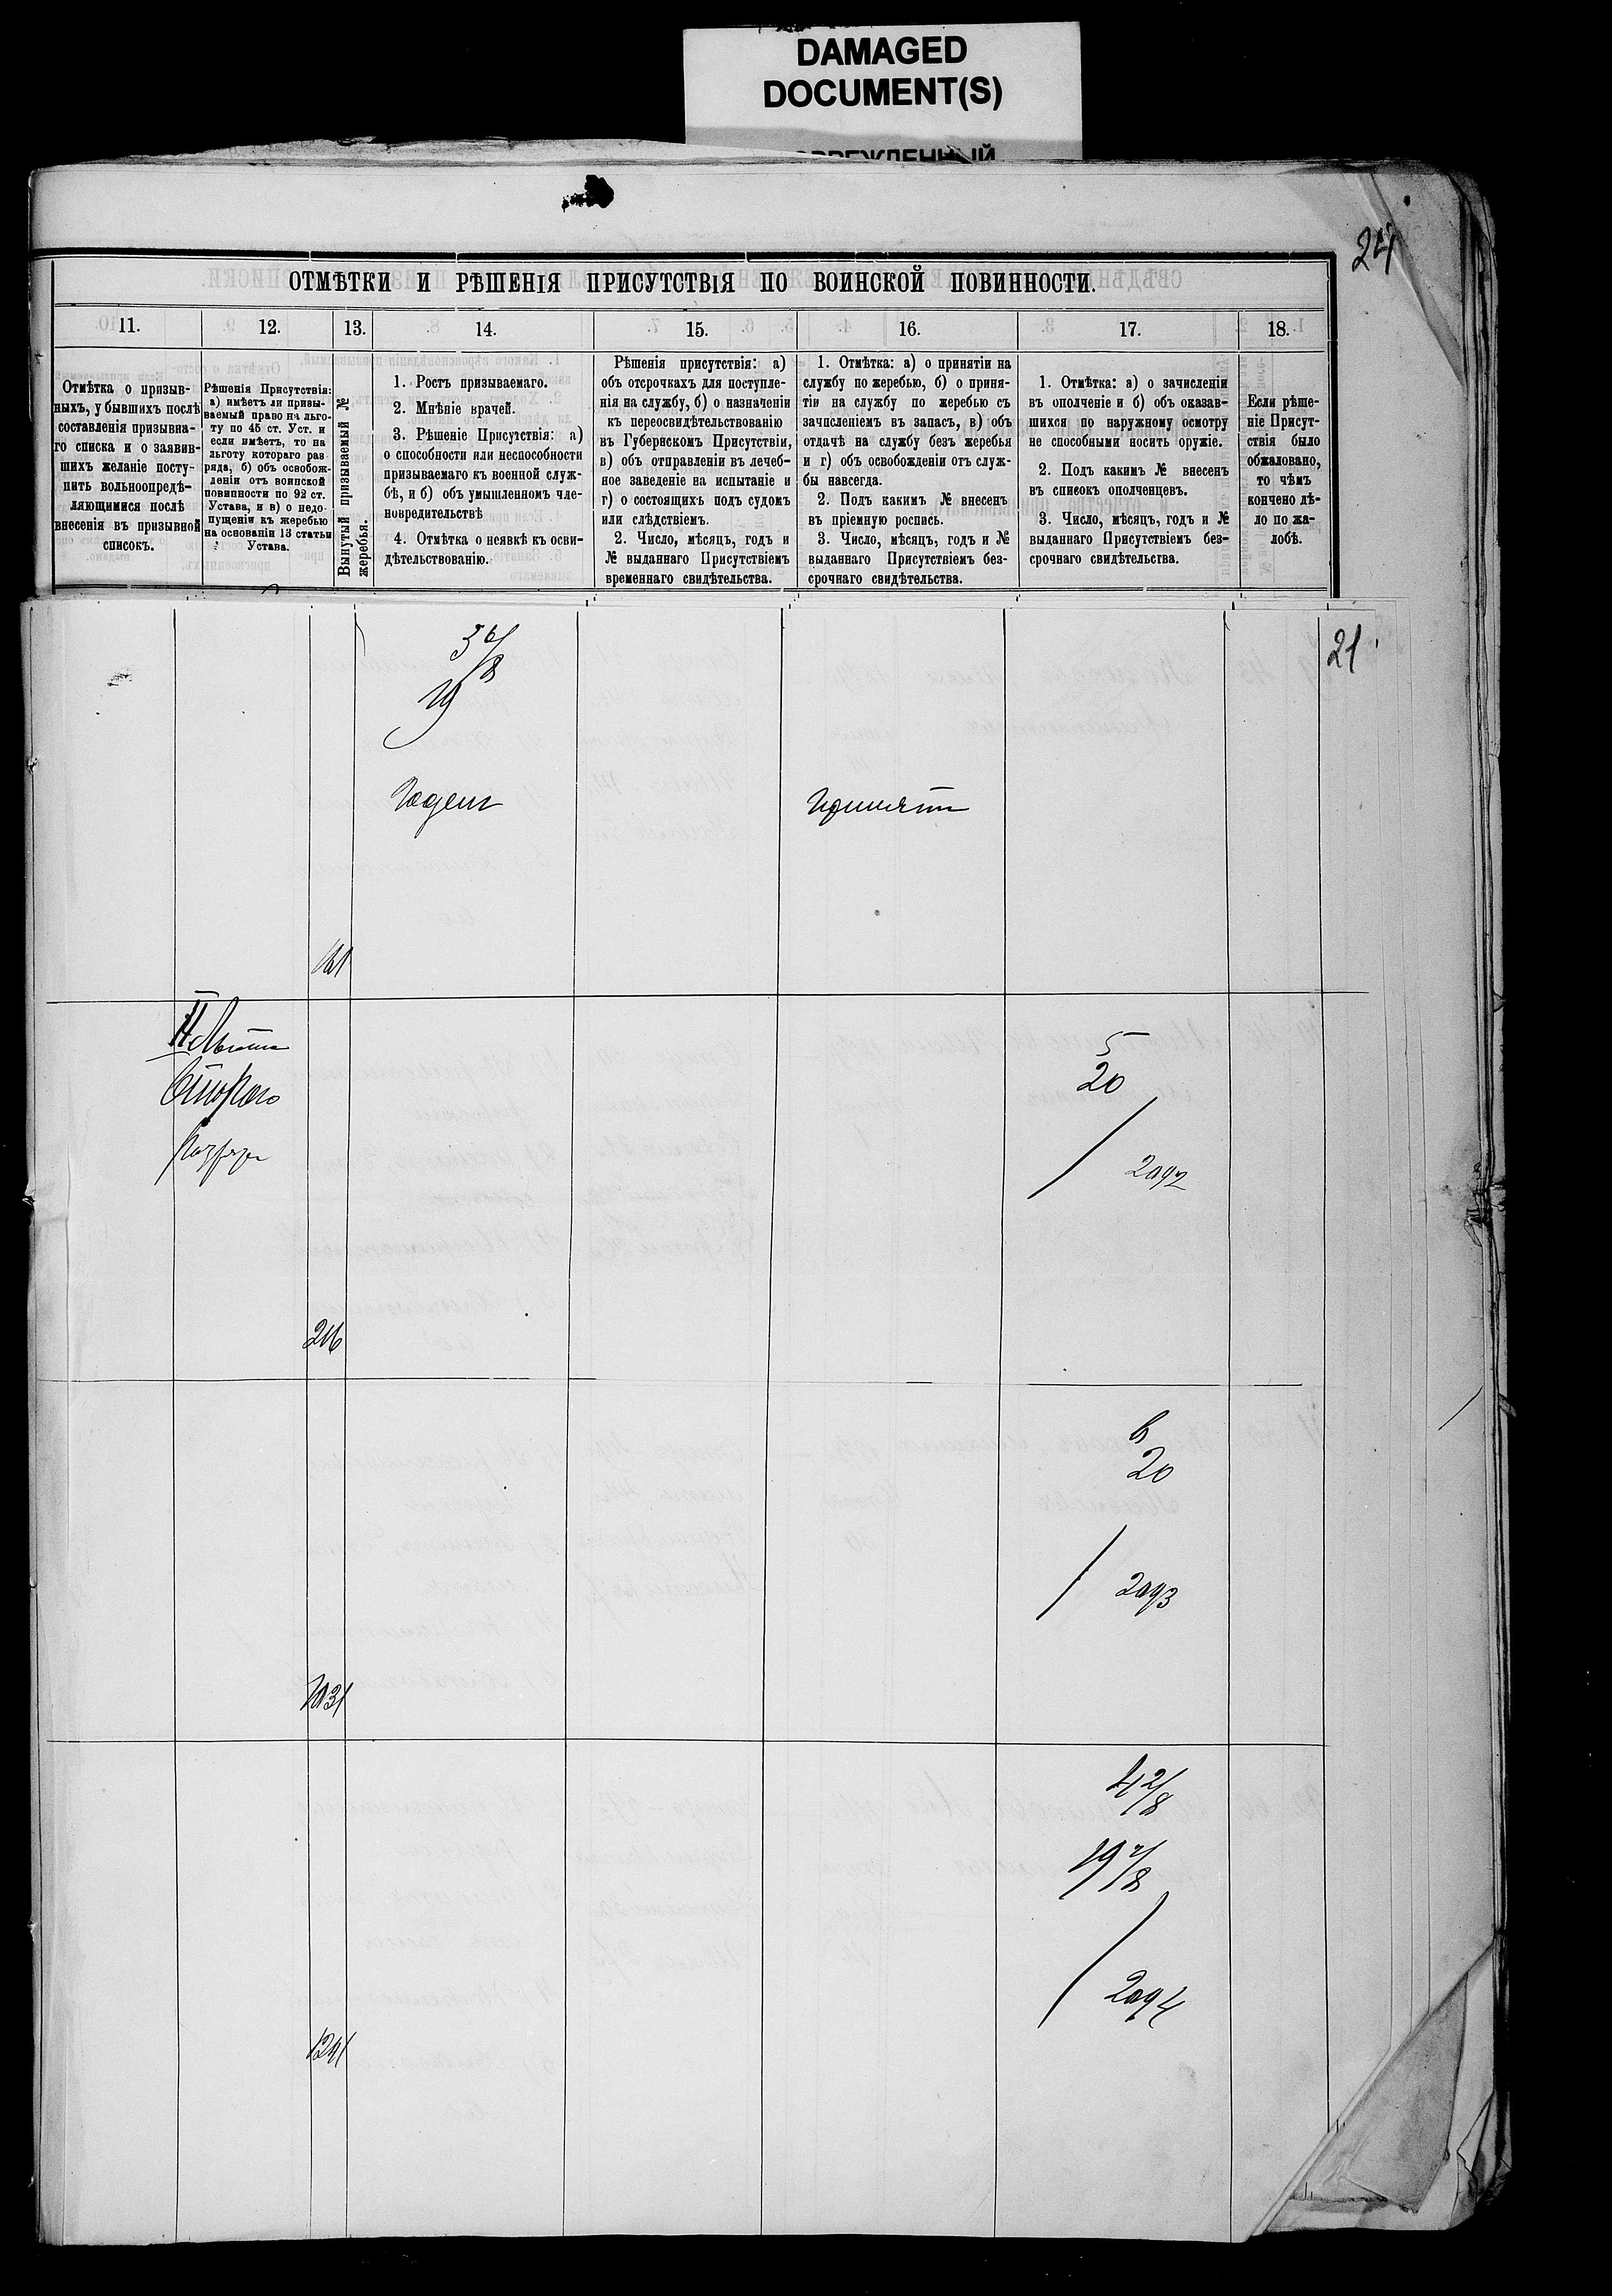 DAMAGED
DOCUMENT(S)
24
ОТМѢТКИ И РѢШЕНІЯ ПРИСУТСТВІЯ ПО ВОИНСКОЙ ПОВИННОСТИ.
11. 12. 13. 14. 15. 16. 17. 18.
Отмѣтка о призыв-
ныхъ, у бывшихъ послѣ
составленія призывна-
го списка и о заявив-
шихъ желаніе посту-
пить вольноопредѣ-
ляющимися послѣ
внесенія въ призывной
списокъ.
Рѣшенія Присутствія:
а) имѣетъ ли призы-
ваемый право на льго-
ту по 45 ст. Уст. и
если имѣетъ, то на
льготу котораго раз
ряда, б) объ освобож-
деніи отъ воинской
повинности по 92 ст.
Устава, и в) о недо-
пущеніи къ жеребью
на основаніи 13 статьи
Устава.
Вынутый призываемый №
жеребья.
1. Ростъ призываемаго.
2. Мнѣніе врачей.
3. Рѣшеніе Присутствія: а)
о способности или неспособности
призываемаго къ военной служ-
бѣ, и б) объ умышленномъ чле-
новредительствѣ
4. Отмѣтка о неявкѣ къ осви-
дѣтельствованію.
Рѣшенія присутствія: а)
объ отсрочкахъ для поступле-
нія на службу, б) о назначеніи
къ переосвидѣтельствованію
въ Губернскомъ Присутствіи,
в) объ отправленіи въ лечеб-
ное заведеніе на испытаніе и
г) о состоящихъ подъ судомъ
или слѣдствіемъ.
2. Число, мѣсяцъ, годъ и
№ выданнаго Присутствіемъ
временнаго свидѣтельства.
1. Отмѣтка: а) о принятіи на
службу по жеребью, б) о приня-
тіи на службу по жеребью съ
зачисленіемъ въ запасъ, в) объ
отдачѣ на службу безъ жеребья
и г) объ освобожденіи отъ служ-
бы навсегда.
2. Подъ какимъ № внесенъ
въ пріемную роспись.
3. Число, мѣсяцъ, годъ и №
выданнаго Присутствіемъ без-
срочнаго свидѣтельства.
1. Отмѣтка: а) о зачисленіи
въ ополченіе и б) объ оказав-
шихся по наружному осмотру
не способными носить оружіе.
2. Подъ какимъ № внесенъ
въ списокъ ополченцевъ.
3. Число, мѣсяцъ, годъ и №
выданнаго Присутствіемъ без-
срочнаго свидѣтельства.
Если рѣше-
ніе Присут-
ствія было
обжаловано,
то чѣмъ
кончено дѣ-
ло по жа-
лобѣ.
21
3 6/8
Годенъ
Принятъ
161
Втораго
разряда
5
20
2092
216
6
20
2093
1031
4 2/8
2094